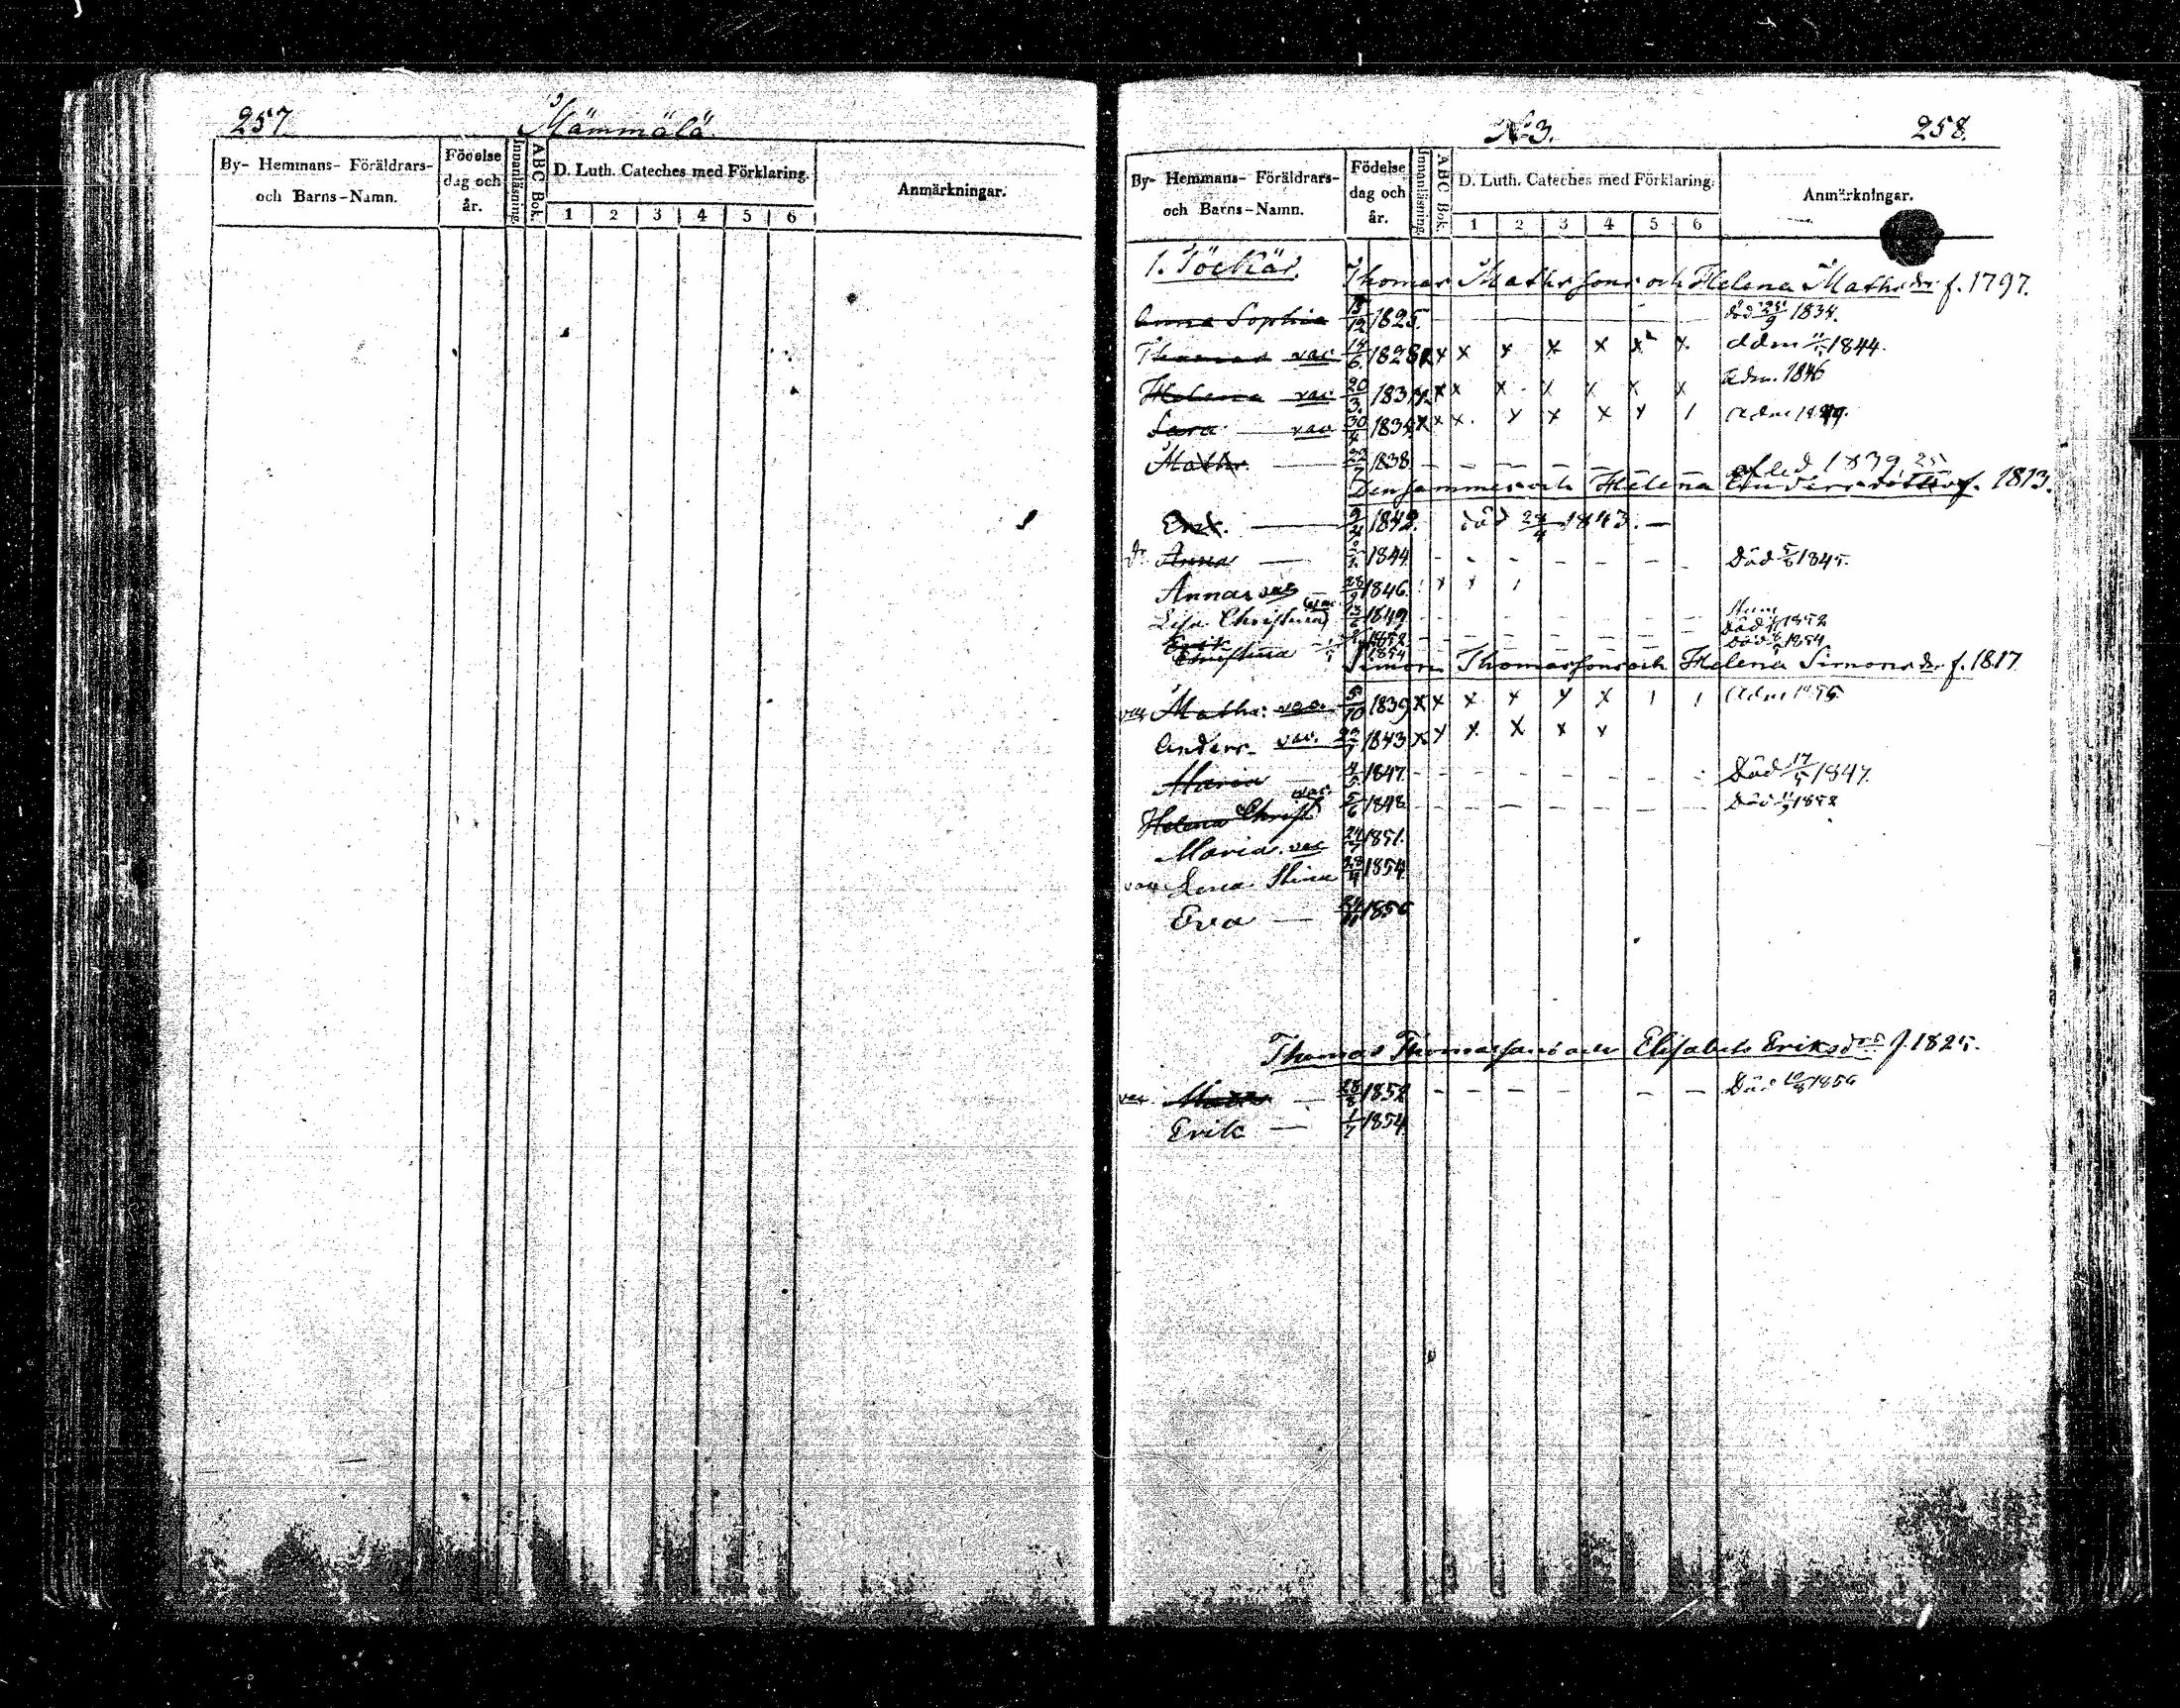 257.
Mämmälä
By- Hemmans- Föräldrars-
och Barns-Namn.
Födelse
dag och
år.
Innanläsning.
ABC Bok.
D. Luth. Cateches med Förklaring.
1 2 3 4 5 6
Anmärkningar.
No 3.
258.
By- Hemmans- Föräldrars-
och Barns-Namn.
Födelse
dag och
år.
Innanläsning.
ABC Bok.
D. Luth. Cateches med Förklaring.
1 2 3 4 5 6
Anmärkningar.
1.
Thomas Mathssons och Helena Mathsdr f. 1797.
Anna Sophia 1825. död 1834.
Thomas vac 14/6 1828 x x x x x x x x adm 1844.
Helena vac 20/3 183 x x x x x x x x adm. 1846
Sara vac 30/4 183 x x x x x x x 1 adm
Maths 22/7 1838 - - - - - - afled 1839
Densammes och Helena Andersdotter f. 1813.
Erik. 1842. död 24/4 1843. -
Anna 1844 - - - - - Död 5/6 1845.
Anna vac 28/9 1846.
Lisa Christina vac 1849 - - - - - - Död 1852
Erik 1852 - - - - - -
Christina 1854 Död 1854
Simon Thomassons och Helena Simonsdr f. 1817
vac Maths: vac. 5/10 1839 x x x x x x 1 1 adm
Anders vac. 1843 x x x x x x
Maria 4/5 1847. - - - - - - Död 17/5 1847.
Helena Christ vac. 5/6 1848 - - - - - - Död 1852
Maria. vac 24/7 1851.
vac Lena Stina 28/4 1854
Eva 1856
Thomas Thomassons och Elisabets Eriksdr f. 1825.
vac 28/8 1852 - - - - - - Död 1856
Erik 1/7 1854